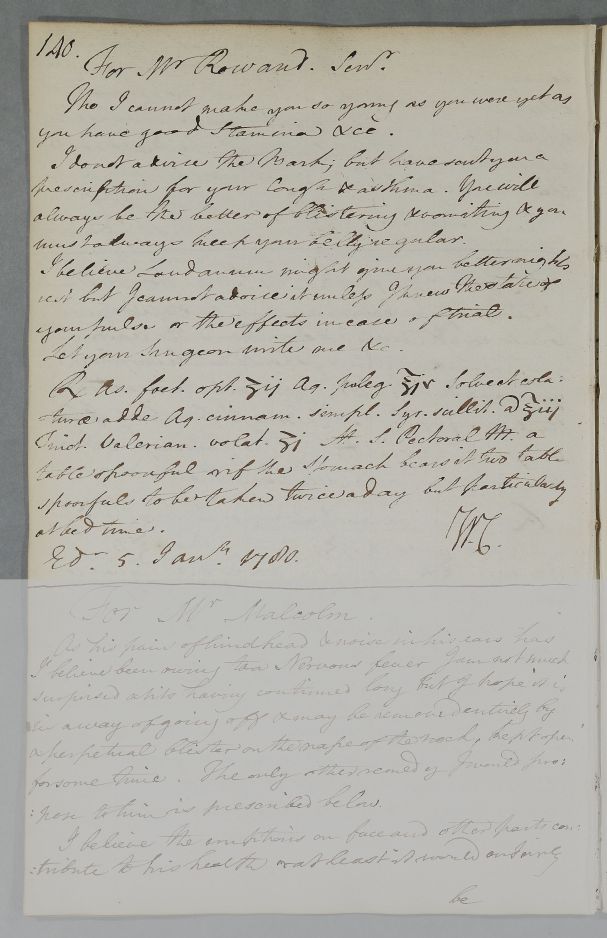 140.
For Mr Rowand. Senr.
Tho I cannot make you so young as you were yet as
you have good Stamina &cc.
I do not advise the Bark; but have sent you a
prescription for your Cough & asthma. You will
always be the better of blistering & vomiting & you
must always keep your belly regular.
I believe Laudanum might give you better nights
rest but I cannot advise it unless I knew the state of
your pulse or the effects in case of trial.
Let your Surgeon write me &c.
℞ As. foet. opt. ʒij Aq. puleg. ℥iv Solve et cola:
:turæ adde Aq. cinnam. simpl. Syr. scillit. a ℥iij
Tinct. Valerian. volat. ℥j M. S. Pectoral M. a
table spoonful or if the Stomach bears it two table
spoonfuls to be taken twice a day but particularly
at bed time.
W.C.
Edr. 5. Janry. 1780.
For Mr Malcolm.
As his pain of hindhead & noise in his ears has
I believe been owing to a Nervous fever I am not much
surprised at its having continued long but I hope it is
in a way of going off & may be removed entirely by
a perpetual blister on the nape of the neck, kept open
for some time. The only other remedy I would pro:
:pose to him is prescribed below.
I believe the eruptions on face and other parts con:
:tribute to his health or at least it would certainly
be